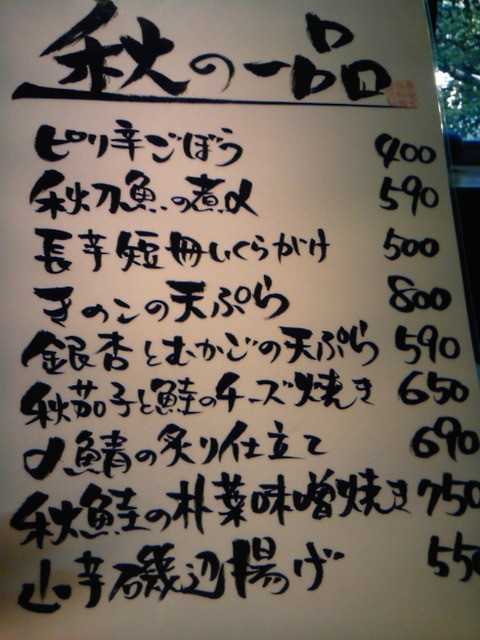 秋の一品
ピリ辛ごぼう 400
秋刀魚の煮〆 590
長芋短冊いくらがけ 500
きのこの天ぷら 800
銀杏とむかごの天ぷら 590
秋茄子と鮭のチーズ焼き 650
〆鯖の炙り仕立て 690
秋鮭の朴葉味噌焼き 750
山芋磯辺揚げ 550